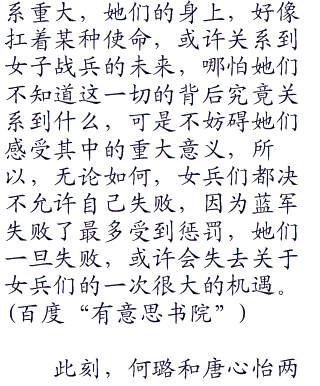 系重大，她们的身上，好像
扛着某种使命，或许关系到
女子战兵的未来，哪怕她们
不知道这一切的背后究竟关
系到什么，可是不妨碍她们
感受其中的重大意义，所
以，无论如何，女兵们都决
不允许自己失败，因为蓝军
失败了最多受到惩罚，她们
一旦失败，或许会失去关于
女兵们的一次很大的机遇。
(百度“有意思书院”)
此刻，何璐和唐心怡两